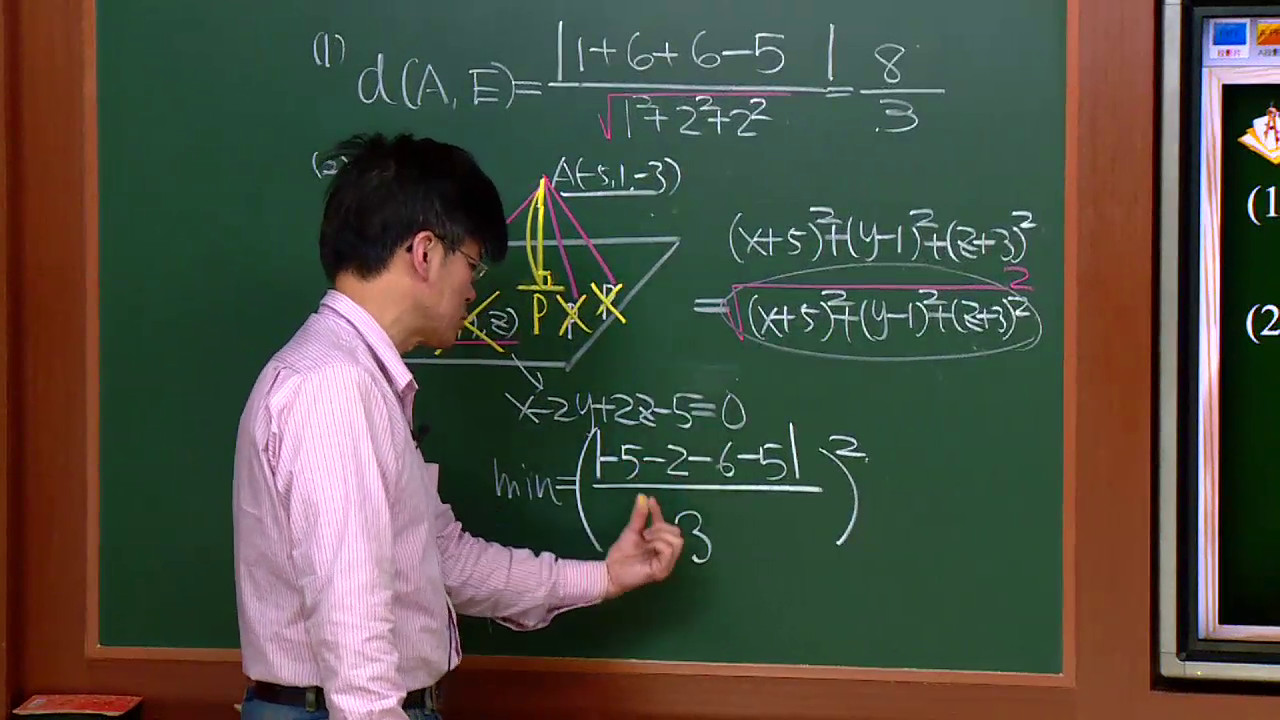 (1) d(A, E) = |1+6+6-5| / √1²+2²+2² = 8/3
(2)
A(-5,1,-3)
(x+5)²+(y-1)²+(z+3)²
= √(x+5)²+(y-1)²+(z+3)² ²
, z) P P P
x-2y+2z-5=0
min=(|-5-2-6-5| / 3)²
(1
(2